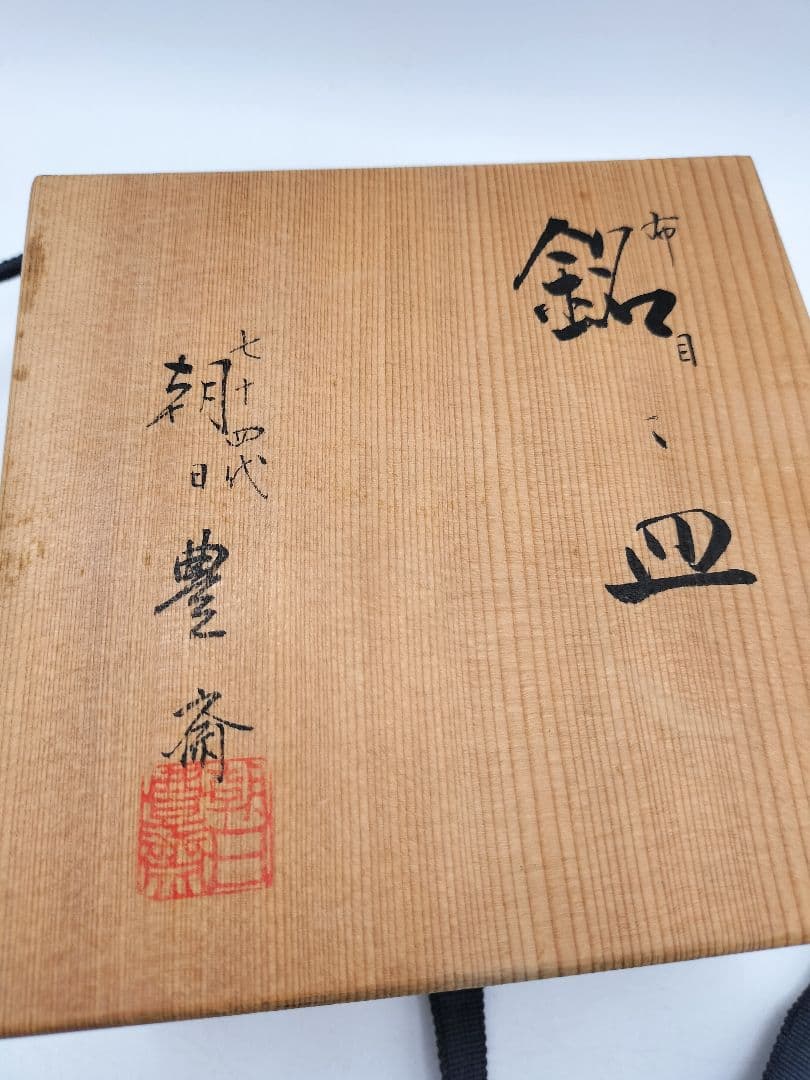 布目
銘〻皿
七十四代
朝日豊斎